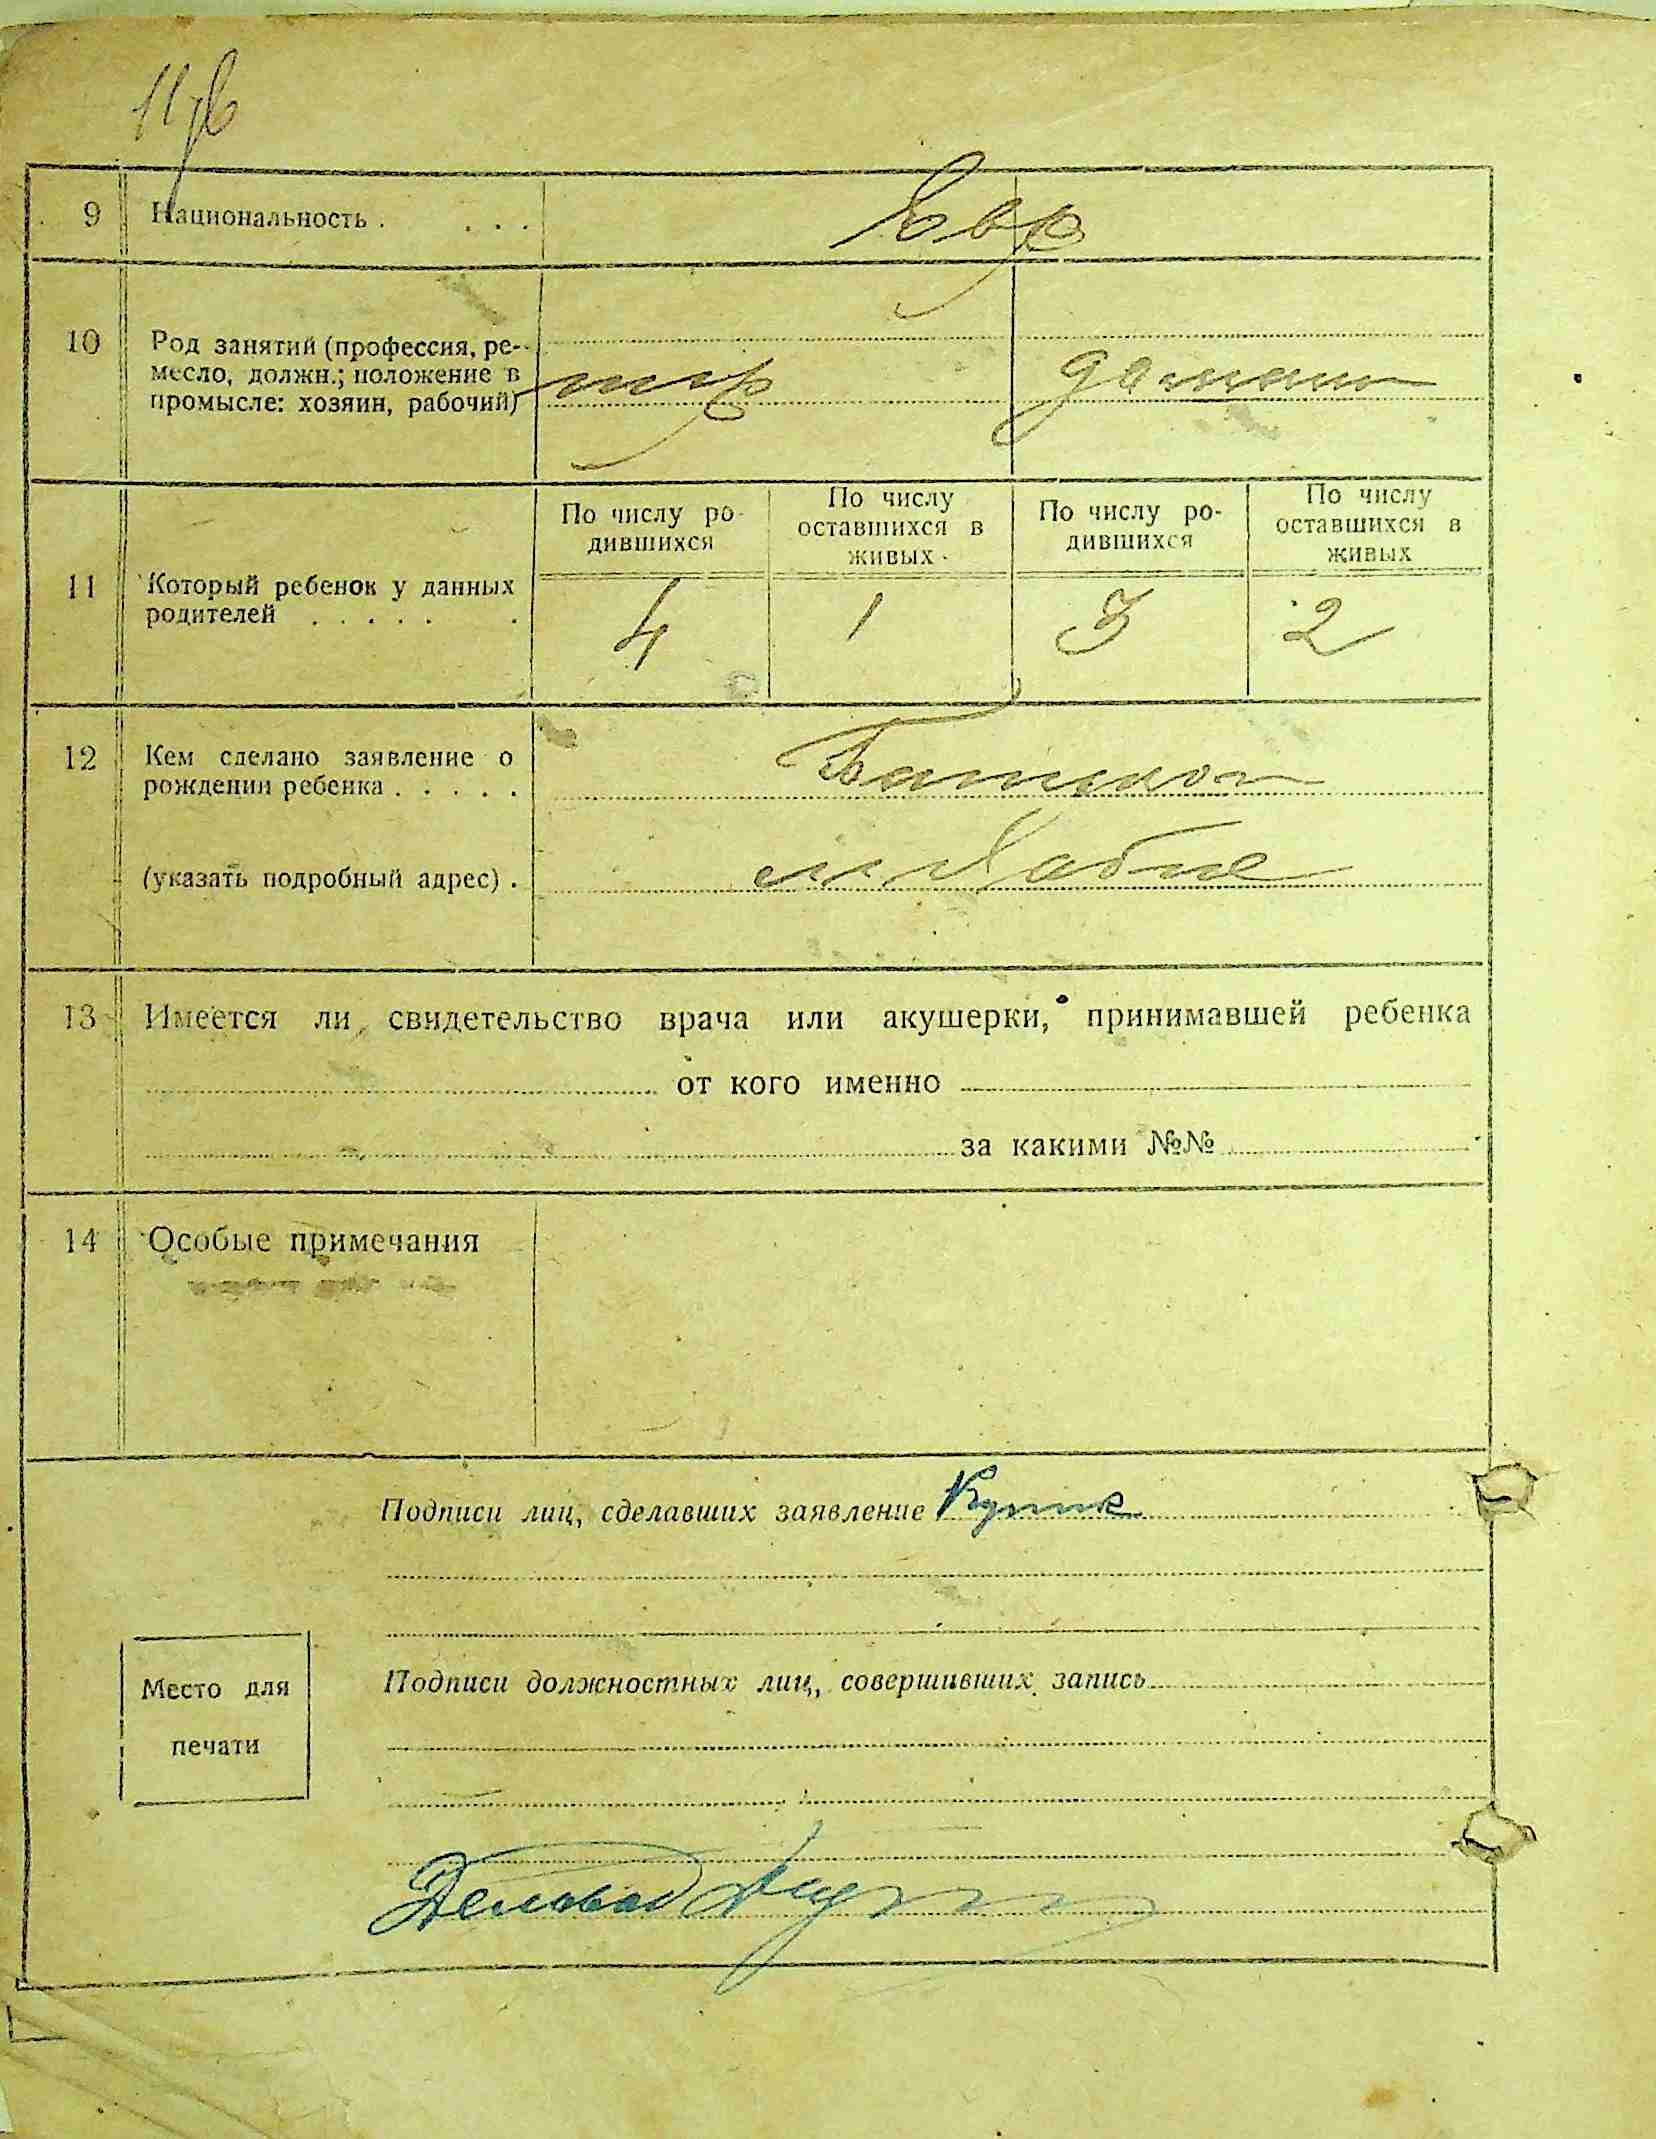 9 Национальность . . . . Евр
10 Род занятий (профессия, ре-
месло, должн.; положение в
промысле: хозяин, рабочий)
По числу ро-
дившихся
По числу
оставшихся в
живых
По числу ро-
дившихся
По числу
оставшихся в
живых
11 Который ребенок у данных
родителей . . . . . .
4 1 3 2
12 Кем сделано заявление о
рождении ребенка . . . . . Батьком
(указать подробный адрес) . м. Хабне
13 Имеется ли свидетельство врача или акушерки, принимавшей ребенка
от кого именно
за какими №№
14 Особые примечания
Подписи лиц, сделавших заявление
Место для
печати
Подписи должностных лиц, совершивших запись